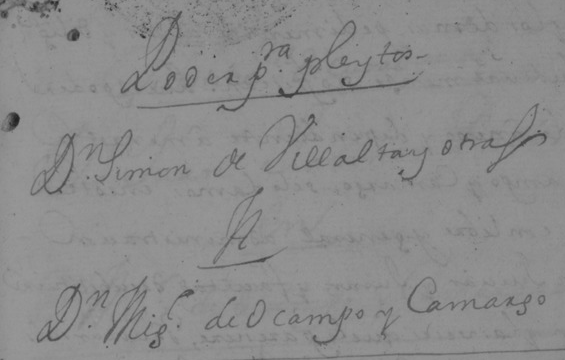 Poder pra. pleytos
Dn. Simon de Villalta y otras
A
Dn. Migl. de Ocampo y Camargo